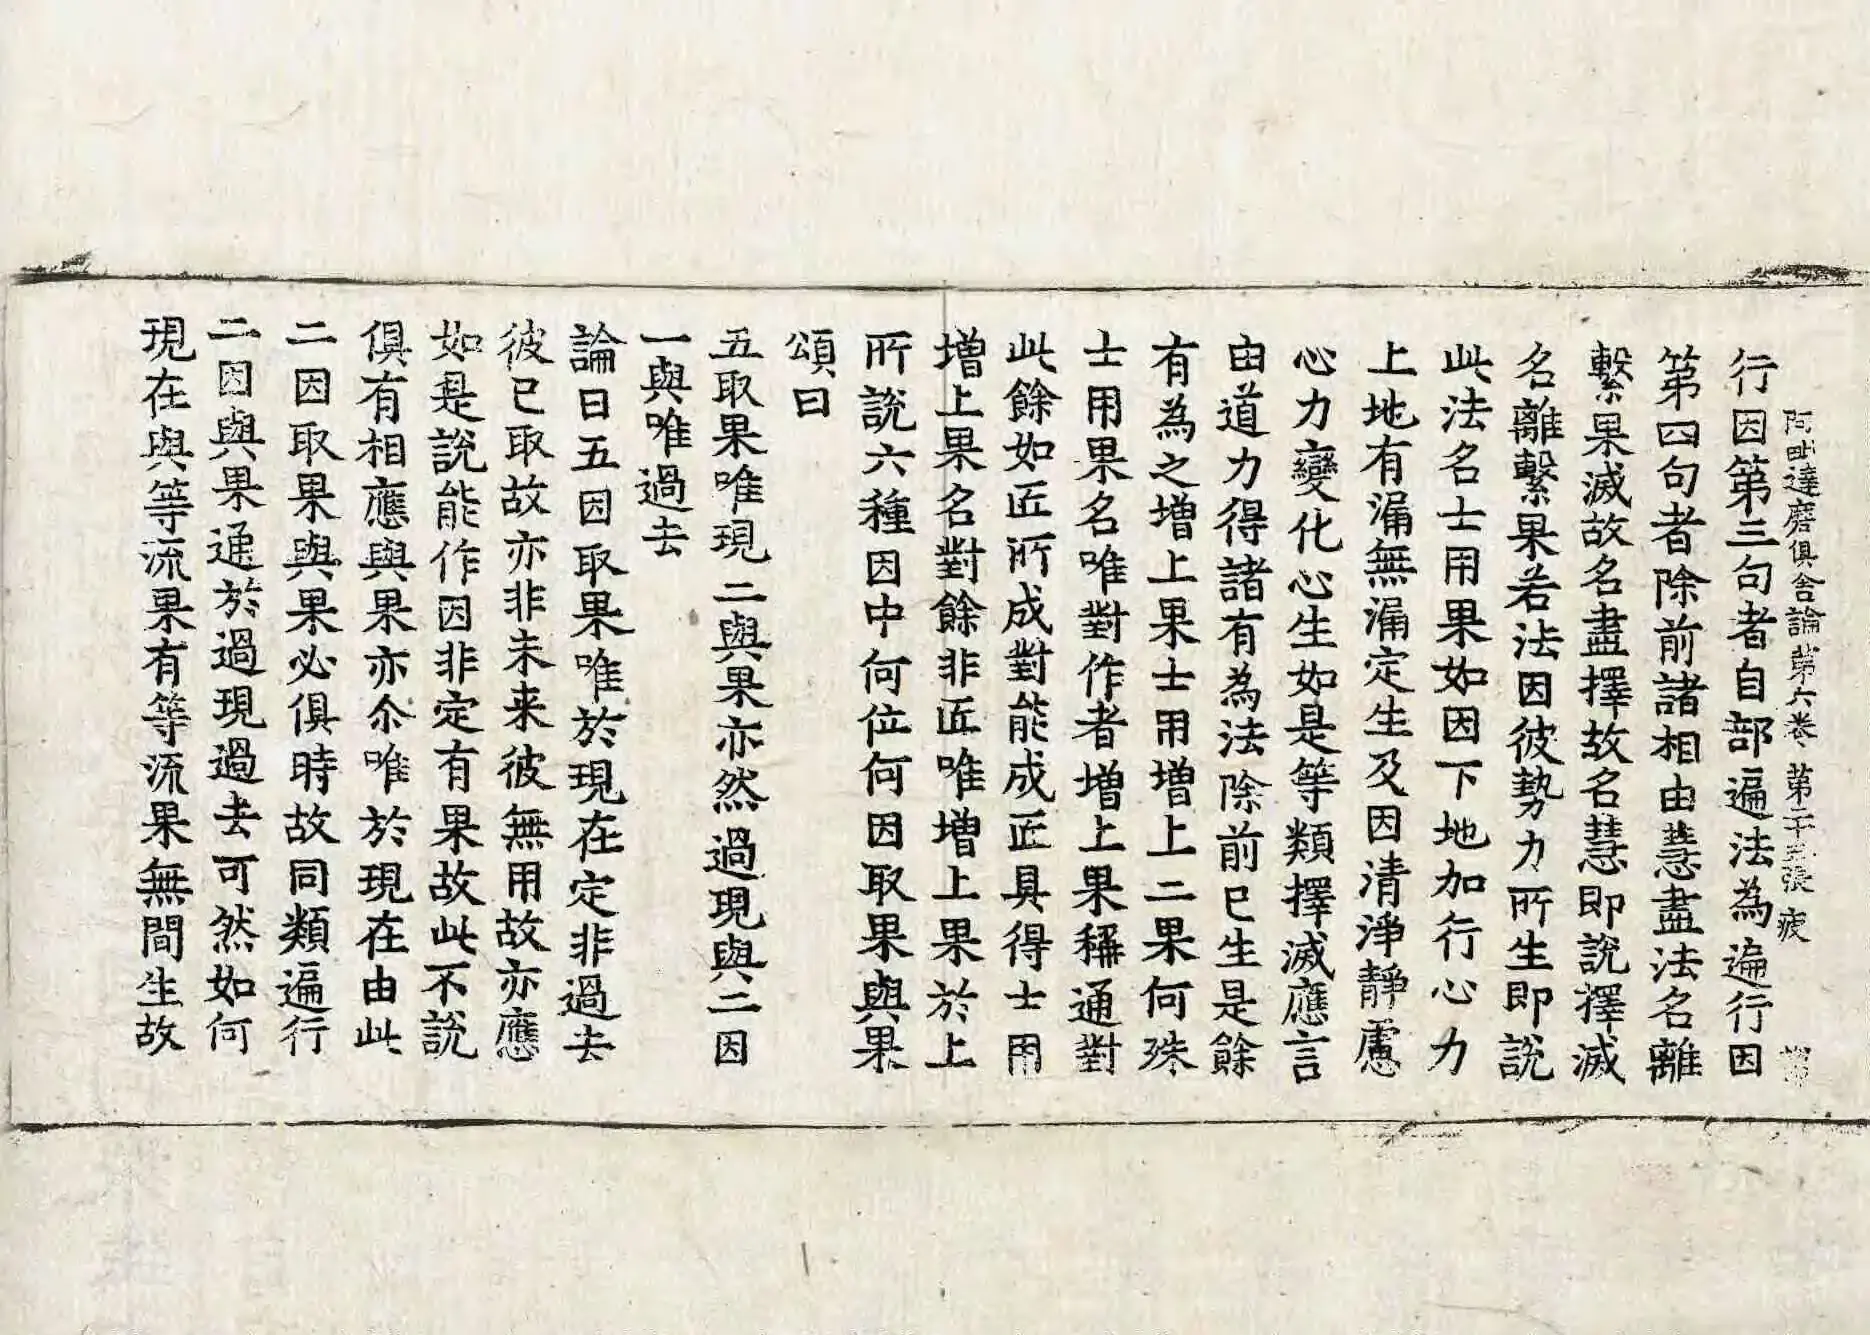 阿毗達磨俱舍論第六卷 第二十五張 疲
行因第三句者自部遍法為遍行因
第四句者除前諸相由慧盡法名離
繫果滅故名盡擇故名慧即說擇滅
名離繫果若法因彼勢力所生即說
此法名士用果如因下地加行心力
上地有漏無漏定生及因清淨靜慮
心力變化心生如是等類擇滅應言
由道力得諸有為法除前已生是餘
有為之增上果士用增上二果何殊
士用果名唯對作者增上果稱通對
此餘如匠所成對能成匠具得士用
增上果名對餘非匠唯增上果於上
所說六種因中何位何因取果與果
頌曰
五取果唯現二與果亦然過現與二因
一與唯過去
論曰五因取果唯於現在定非過去
彼已取故亦非未来彼無用故亦應
如是說能作因非定有果故此不說
俱有相應與果亦尒唯於現在由此
二因取果與果必俱時故同類遍行
二因與果通於過現過去可然如何
現在與等流果有等流果無間生故